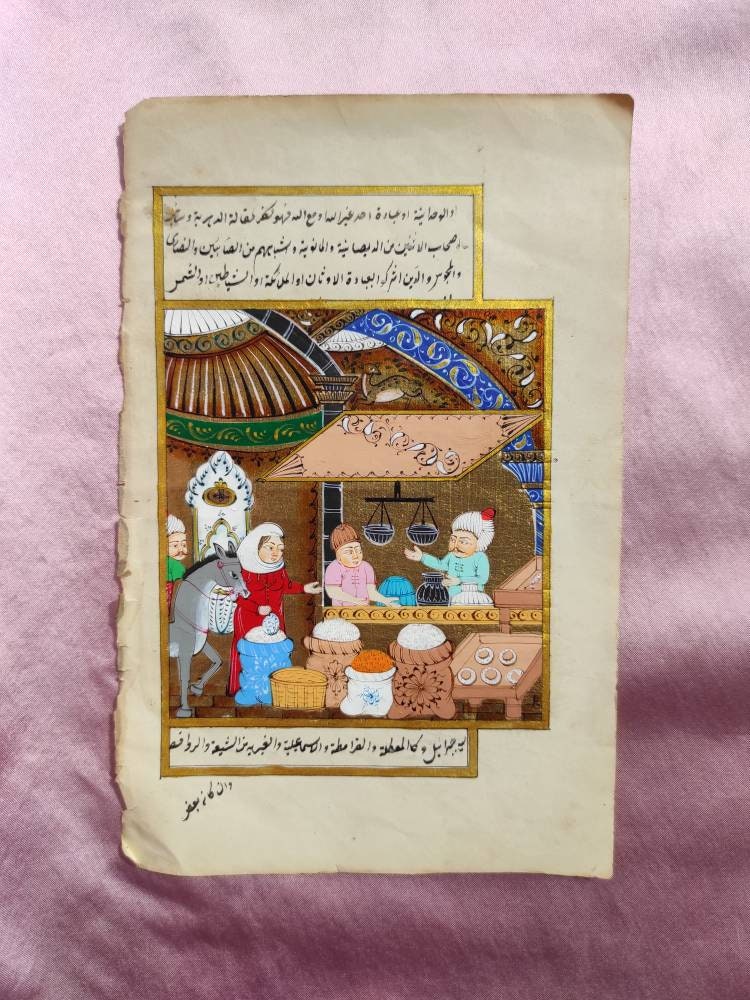 او الوحدانية او عبادة احد غير الله او مع الله فهو كفر كمقالة الدهرية وسائر
اصحاب الاثنين من الديصانية والمانوية واشباههم من الصابين والنصارى
والمجوس والذين اشركوا بعبادة الاوثان او الملائكة او الشياطين او الشمس
وكالمعطلة والقرامطة والاسماعيلية والعنبرية من الشيعة والروافض
وان كان بعض